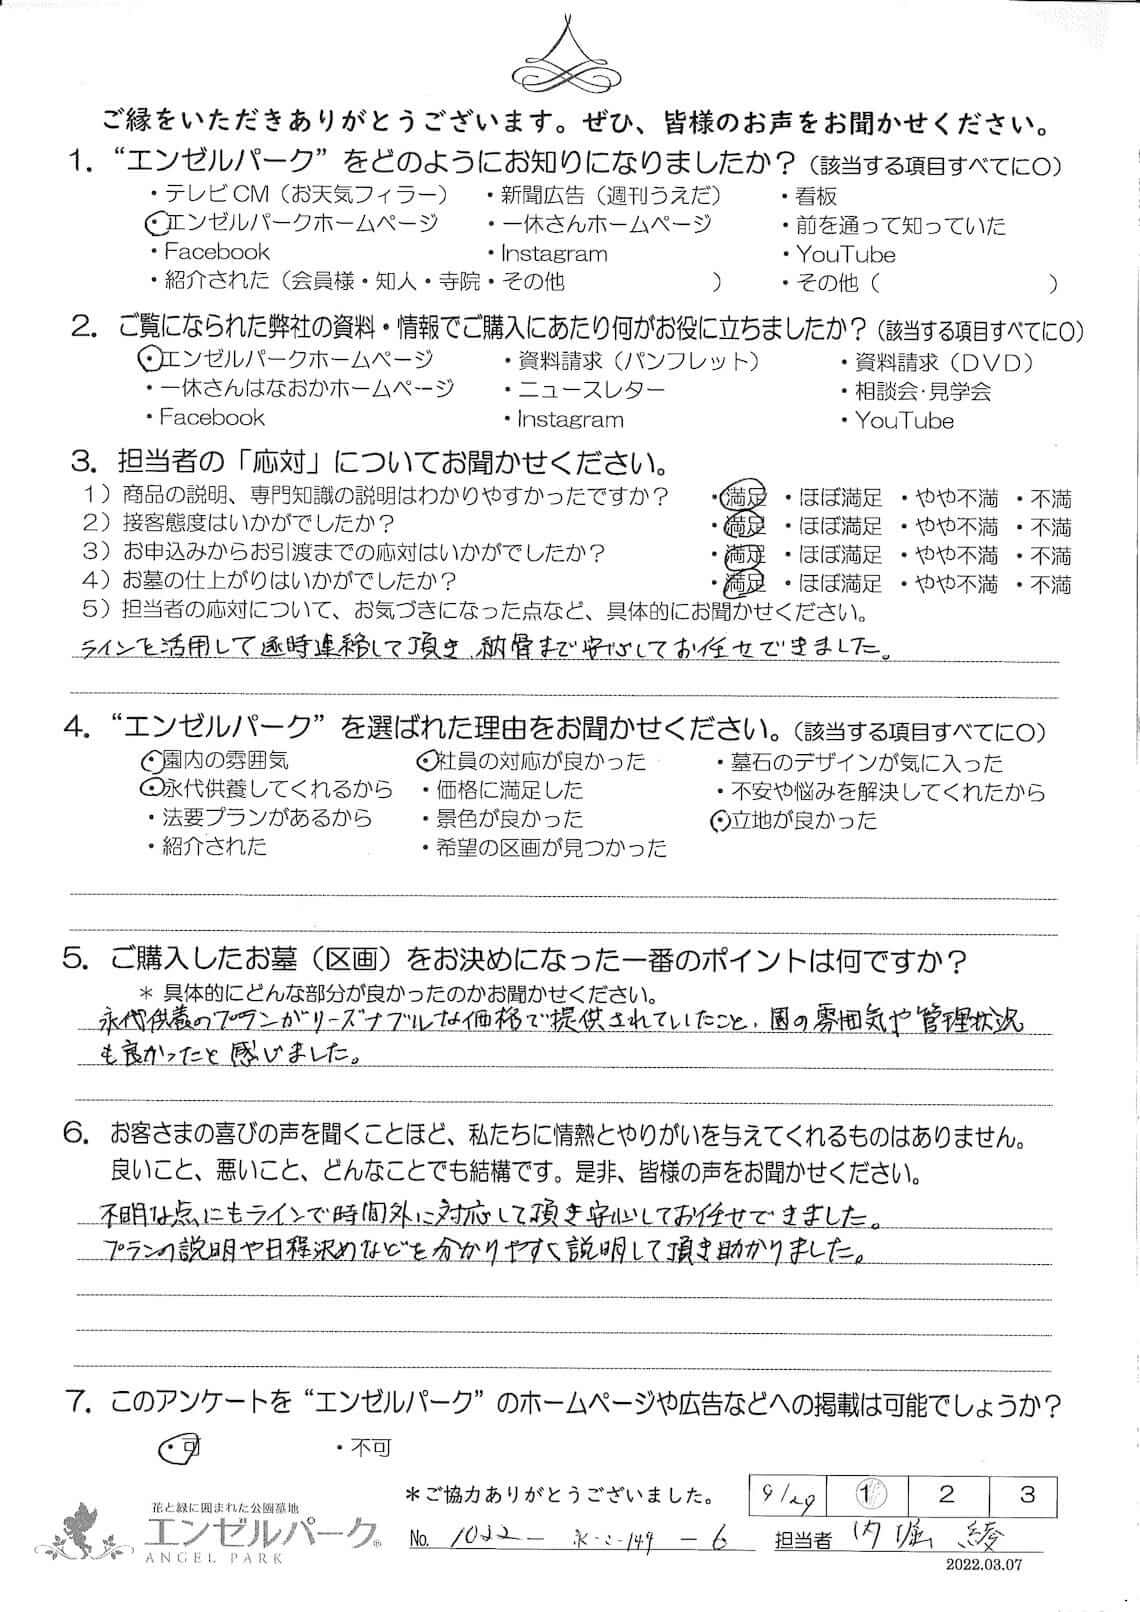 ご縁をいただきありがとうございます。ぜひ、皆様のお声をお聞かせください。
1. “エンゼルパーク” をどのようにお知りになりましたか？（該当する項目すべてに○）
・テレビCM（お天気フィラー） ・新聞広告（週刊うえだ） ・看板
・エンゼルパークホームページ ・一休さんホームページ ・前を通って知っていた
・Facebook ・Instagram ・YouTube
・紹介された（会員様・知人・寺院・その他 ） ・その他（ ）
2. ご覧になられた弊社の資料・情報でご購入にあたり何がお役に立ちましたか？（該当する項目すべてに○）
・エンゼルパークホームページ ・資料請求（パンフレット） ・資料請求（DVD）
・一休さんはなおかホームページ ・ニュースレター ・相談会･見学会
・Facebook ・Instagram ・YouTube
3. 担当者の「応対」についてお聞かせください。
1）商品の説明、専門知識の説明はわかりやすかったですか？ ・満足 ・ほぼ満足 ・やや不満 ・不満
2）接客態度はいかがでしたか？ ・満足 ・ほぼ満足 ・やや不満 ・不満
3）お申込みからお引渡までの応対はいかがでしたか？ ・満足 ・ほぼ満足 ・やや不満 ・不満
4）お墓の仕上がりはいかがでしたか？ ・満足 ・ほぼ満足 ・やや不満 ・不満
5）担当者の応対について、お気づきになった点など、具体的にお聞かせください。
ラインを活用して逐時連絡して頂き、納骨まで安心してお任せできました。
4. “エンゼルパーク” を選ばれた理由をお聞かせください。（該当する項目すべてに○）
・園内の雰囲気 ・社員の対応が良かった ・墓石のデザインが気に入った
・永代供養してくれるから ・価格に満足した ・不安や悩みを解決してくれたから
・法要プランがあるから ・景色が良かった ・立地が良かった
・紹介された ・希望の区画が見つかった
5. ご購入したお墓（区画）をお決めになった一番のポイントは何ですか？
＊ 具体的にどんな部分が良かったのかお聞かせください。
永代供養のプランがリーズナブルな価格で提供されていたこと、園の雰囲気や管理状況
も良かったと感じました。
6. お客さまの喜びの声を聞くことほど、私たちに情熱とやりがいを与えてくれるものはありません。
良いこと、悪いこと、どんなことでも結構です。是非、皆様の声をお聞かせください。
不明な点にもラインで時間外に対応して頂き安心してお任せできました。
プランの説明や日程決めなどを分かりやすく説明して頂き助かりました。
7. このアンケートを “エンゼルパーク” のホームページや広告などへの掲載は可能でしょうか？
・可 ・不可
＊ご協力ありがとうございました。 9/29 1 2 3
花と緑に囲まれた公園墓地
エンゼルパーク®
ANGEL PARK
No. 1022- 永-2-149 -6 担当者 内堀 綾
2022.03.07